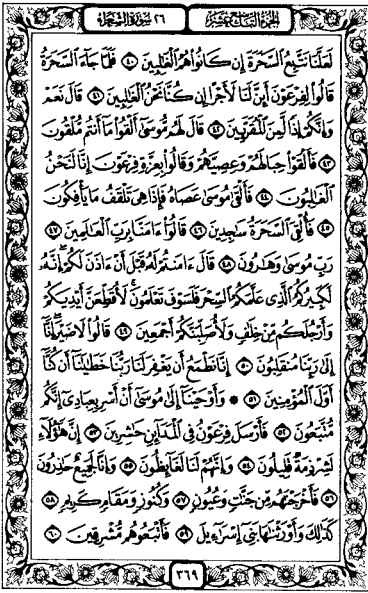 الجزء التاسع عشر
٢٦ سورة الشعراء
لَعَلَّنَا نَتَّبِعُ ٱلسَّحَرَةَ إِن كَانُوا۟ هُمُ ٱلْغَٰلِبِينَ ٤٠ فَلَمَّا جَآءَ ٱلسَّحَرَةُ
قَالُوا۟ لِفِرْعَوْنَ أَئِنَّ لَنَا لَأَجْرًا إِن كُنَّا نَحْنُ ٱلْغَٰلِبِينَ ٤١ قَالَ نَعَمْ
وَإِنَّكُمْ إِذًا لَّمِنَ ٱلْمُقَرَّبِينَ ٤٢ قَالَ لَهُم مُّوسَىٰٓ أَلْقُوا۟ مَآ أَنتُم مُّلْقُونَ
٤٣ فَأَلْقَوْا۟ حِبَالَهُمْ وَعِصِيَّهُمْ وَقَالُوا۟ بِعِزَّةِ فِرْعَوْنَ إِنَّا لَنَحْنُ
ٱلْغَٰلِبُونَ ٤٤ فَأَلْقَىٰ مُوسَىٰ عَصَاهُ فَإِذَا هِىَ تَلْقَفُ مَا يَأْفِكُونَ
٤٥ فَأُلْقِىَ ٱلسَّحَرَةُ سَٰجِدِينَ ٤٦ قَالُوٓا۟ ءَامَنَّا بِرَبِّ ٱلْعَٰلَمِينَ ٤٧
رَبِّ مُوسَىٰ وَهَٰرُونَ ٤٨ قَالَ ءَامَنتُمْ لَهُۥ قَبْلَ أَنْ ءَاذَنَ لَكُمْ إِنَّهُۥ
لَكَبِيرُكُمُ ٱلَّذِى عَلَّمَكُمُ ٱلسِّحْرَ فَلَسَوْفَ تَعْلَمُونَ لَأُقَطِّعَنَّ أَيْدِيَكُمْ
وَأَرْجُلَكُم مِّنْ خِلَٰفٍ وَلَأُصَلِّبَنَّكُمْ أَجْمَعِينَ ٤٩ قَالُوا۟ لَا ضَيْرَ إِنَّآ
إِلَىٰ رَبِّنَا مُنقَلِبُونَ ٥٠ إِنَّا نَطْمَعُ أَن يَغْفِرَ لَنَا رَبُّنَا خَطَٰيَٰنَآ أَن كُنَّآ
أَوَّلَ ٱلْمُؤْمِنِينَ ٥١ ۞ وَأَوْحَيْنَآ إِلَىٰ مُوسَىٰٓ أَنْ أَسْرِ بِعِبَادِىٓ إِنَّكُم
مُّتَّبَعُونَ ٥٢ فَأَرْسَلَ فِرْعَوْنُ فِى ٱلْمَدَآئِنِ حَٰشِرِينَ ٥٣ إِنَّ هَٰٓؤُلَآءِ
لَشِرْذِمَةٌ قَلِيلُونَ ٥٤ وَإِنَّهُمْ لَنَا لَغَآئِظُونَ ٥٥ وَإِنَّا لَجَمِيعٌ حَٰذِرُونَ
٥٦ فَأَخْرَجْنَٰهُم مِّن جَنَّٰتٍ وَعُيُونٍ ٥٧ وَكُنُوزٍ وَمَقَامٍ كَرِيمٍ ٥٨
كَذَٰلِكَ وَأَوْرَثْنَٰهَا بَنِىٓ إِسْرَٰٓءِيلَ ٥٩ فَأَتْبَعُوهُم مُّشْرِقِينَ ٦٠
٣٦٩